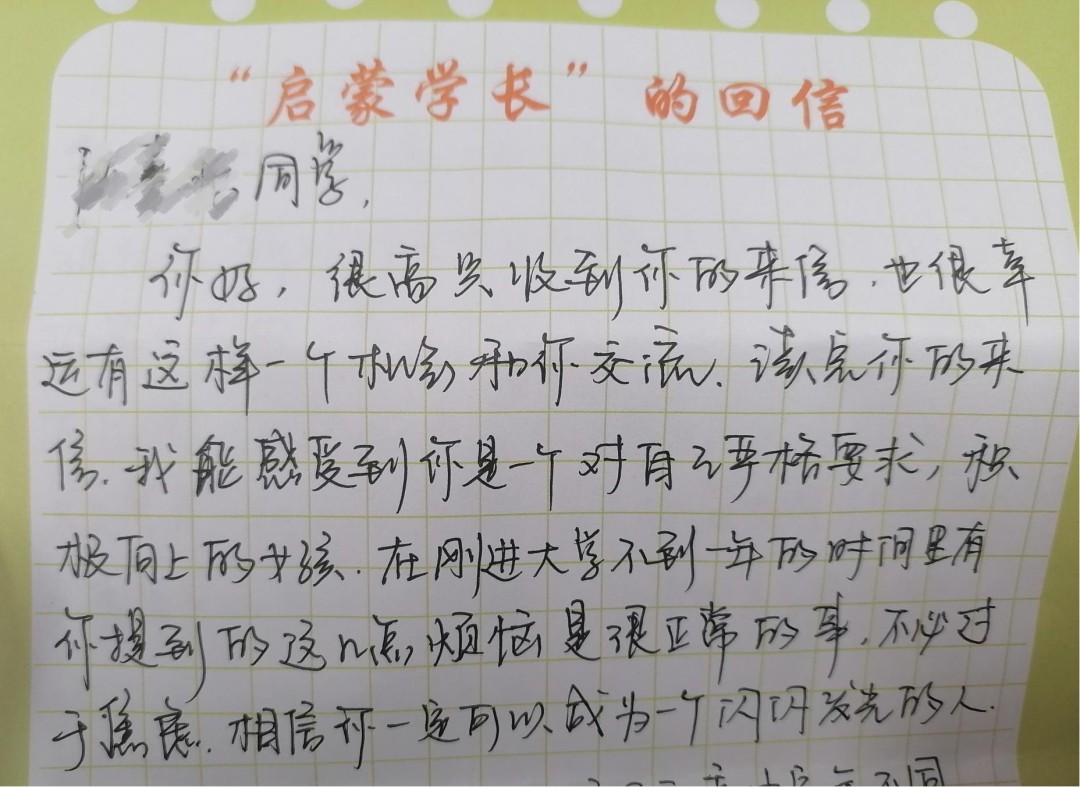 “启蒙学长”的回信
同学,
你好, 很高兴收到你的来信. 也很幸
运有这样一个机会和你交流. 读完你的来
信. 我能感受到你是一个对自己严格要求, 积
极向上的女孩. 在刚进大学不到一年的时间里有
你提到的这几点烦恼是很正常的事. 不必过
于焦虑. 相信你一定可以成为一个闪闪发光的人.